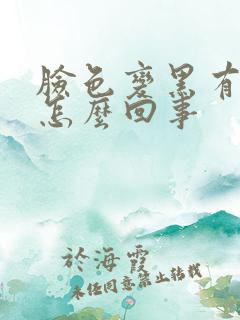 臉色變黑有
怎麼回事
於海霞
未經同意禁止轉載